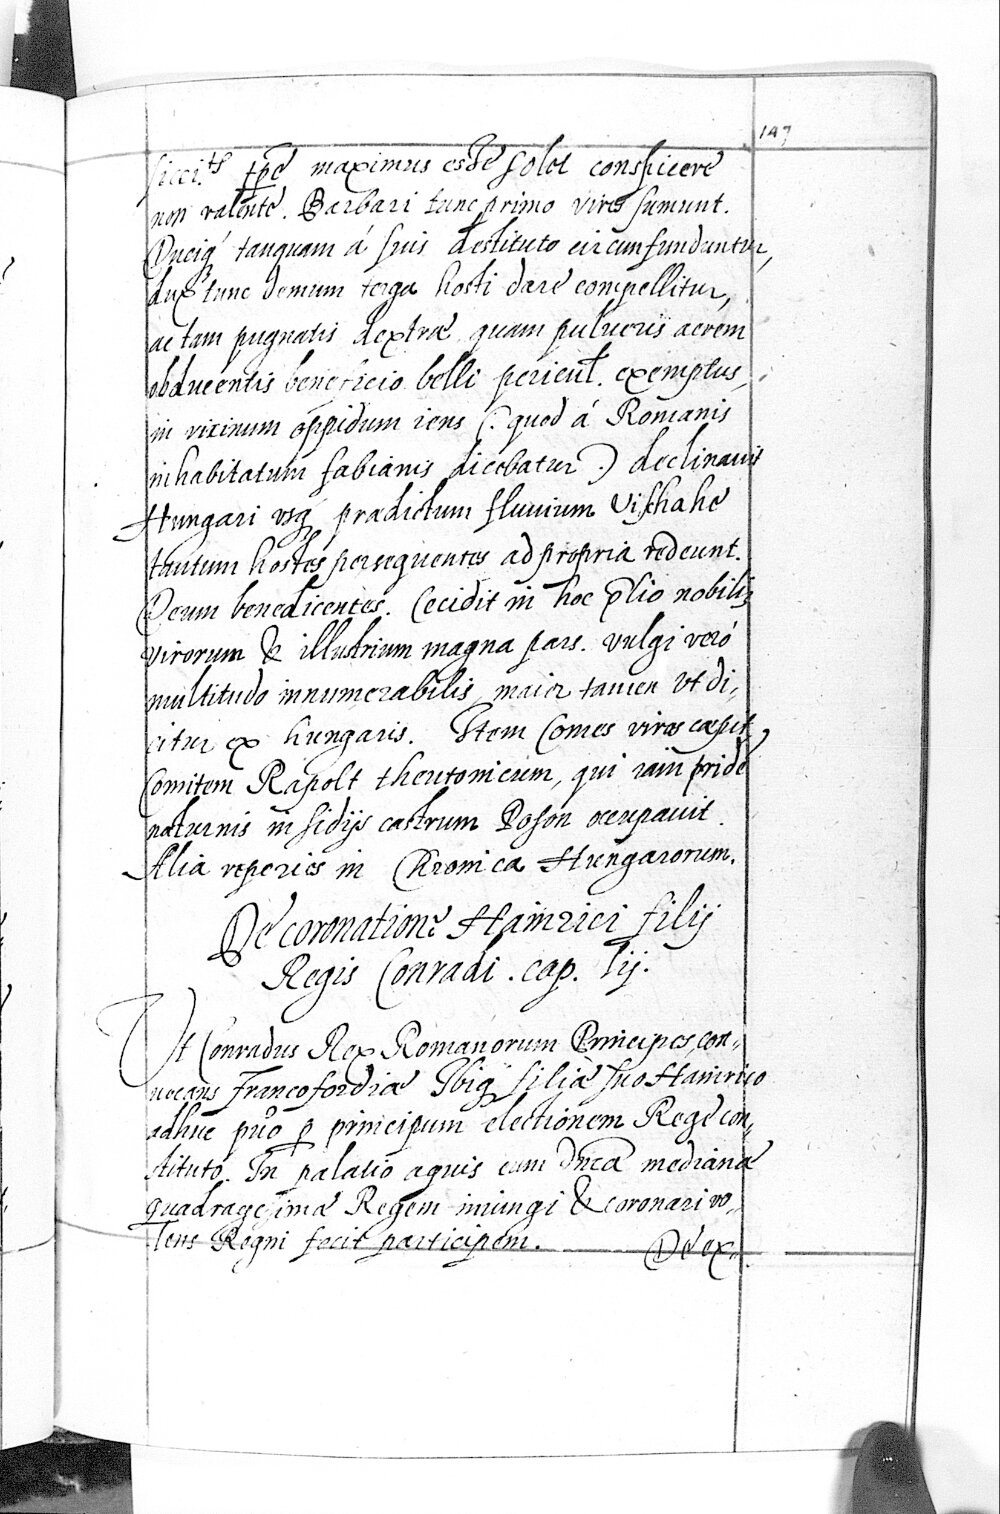 147
sicci.ts tp̄e maximus esse solet conspicere
non valente. Barbari tunc primo vires sumunt.
Duciq́ tanquam á suis destituto circunfunduntur,
dux tunc demum terga hosti dare compellitur,
ac tam pugnatis dextra quam pulueris aerem
obducentis beneficio belli pericul. exemptus,
in vicinum oppidum iens (: quod á Romanis
inhabitatum fabianis dicebatur :) declinauit
Hungari vsq́ prædictum fluuium Vischahe
tantum hostes persequentes ad propria redeunt.
Deum benedicentes. Cecidit in hoc p̄lio nobiliū
virorum & illustrium magna pars. vulgi veró
multitudo innumerabilis, maior tamen vt di,,
citur ex hungaris. Item Comes vires cæpit,
Comitem Rapolt theutonicum, qui iam pridē
nocturnis insidijs castrum Poson occupauit.
Alia reperies in Chronica Hungarorum.
De coronatione Hainrici filij
Regis Conradi. cap. lij.
Vt Conradus Rex Romanorum Principes, con,,
uocans Francofordiæ Ibiq́ filiū suo Hainrico
adhuc puō p principum electionem Regē con,,
stituto. In palatio aquis cum dn̄ca mediana
quadragesimæ Regem iniungi & coronari vo,,
lens Regni fecit participem.
De ex,,